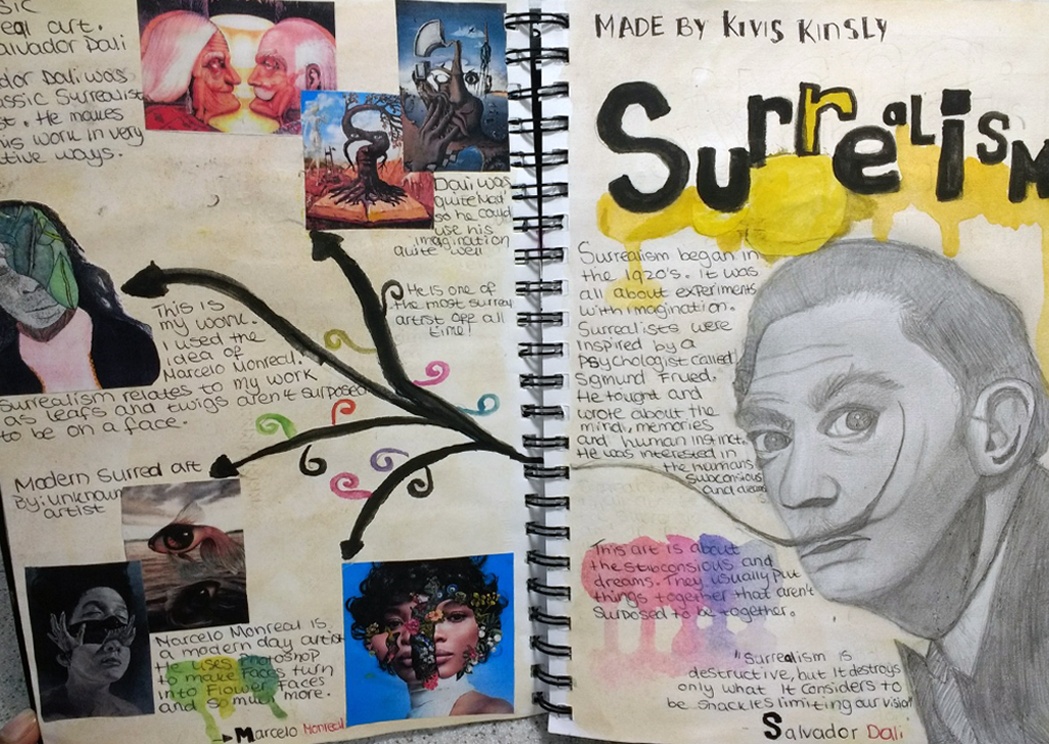 sic
eal art.
alvador Dali
ador Dali was
assic Surrealist
st. He makes
his work in very
tive ways.
Dali was
quite "Mad"
so he could
use his
imagination
quite well
He is one of
the most surreal
artist off all
time!
This is
my work.
I used the
idea of
Marcelo Monreal.
Surrealism relates to my work
as leafs and twigs aren't surposed
to be on a face.
Modern Surreal art
By: unknown
artist
Marcelo Monreal is
a modern day artist
He uses Photoshop
to make Faces turn
into Flower Faces
and so much more.
Marcelo Monreal
MADE BY KIVIS KINSLY
SurrealiSM
Surrealism began in
the 1920's. It was
all about experiments
with imagination.
Surrealists were
inspired by a
Psychologist called
Sgmund Frued.
He tought and
wrote about the
mind, memories
and human instinct.
He was interested in
the humans
subconsious
and dreams
This art is about
the subconsious and
dreams. They usually put
things together that aren't
surposed to be together.
"Surrealism is
destructive, but it destroys
only what it considers to
be shackles limiting our vision"
Salvador Dali